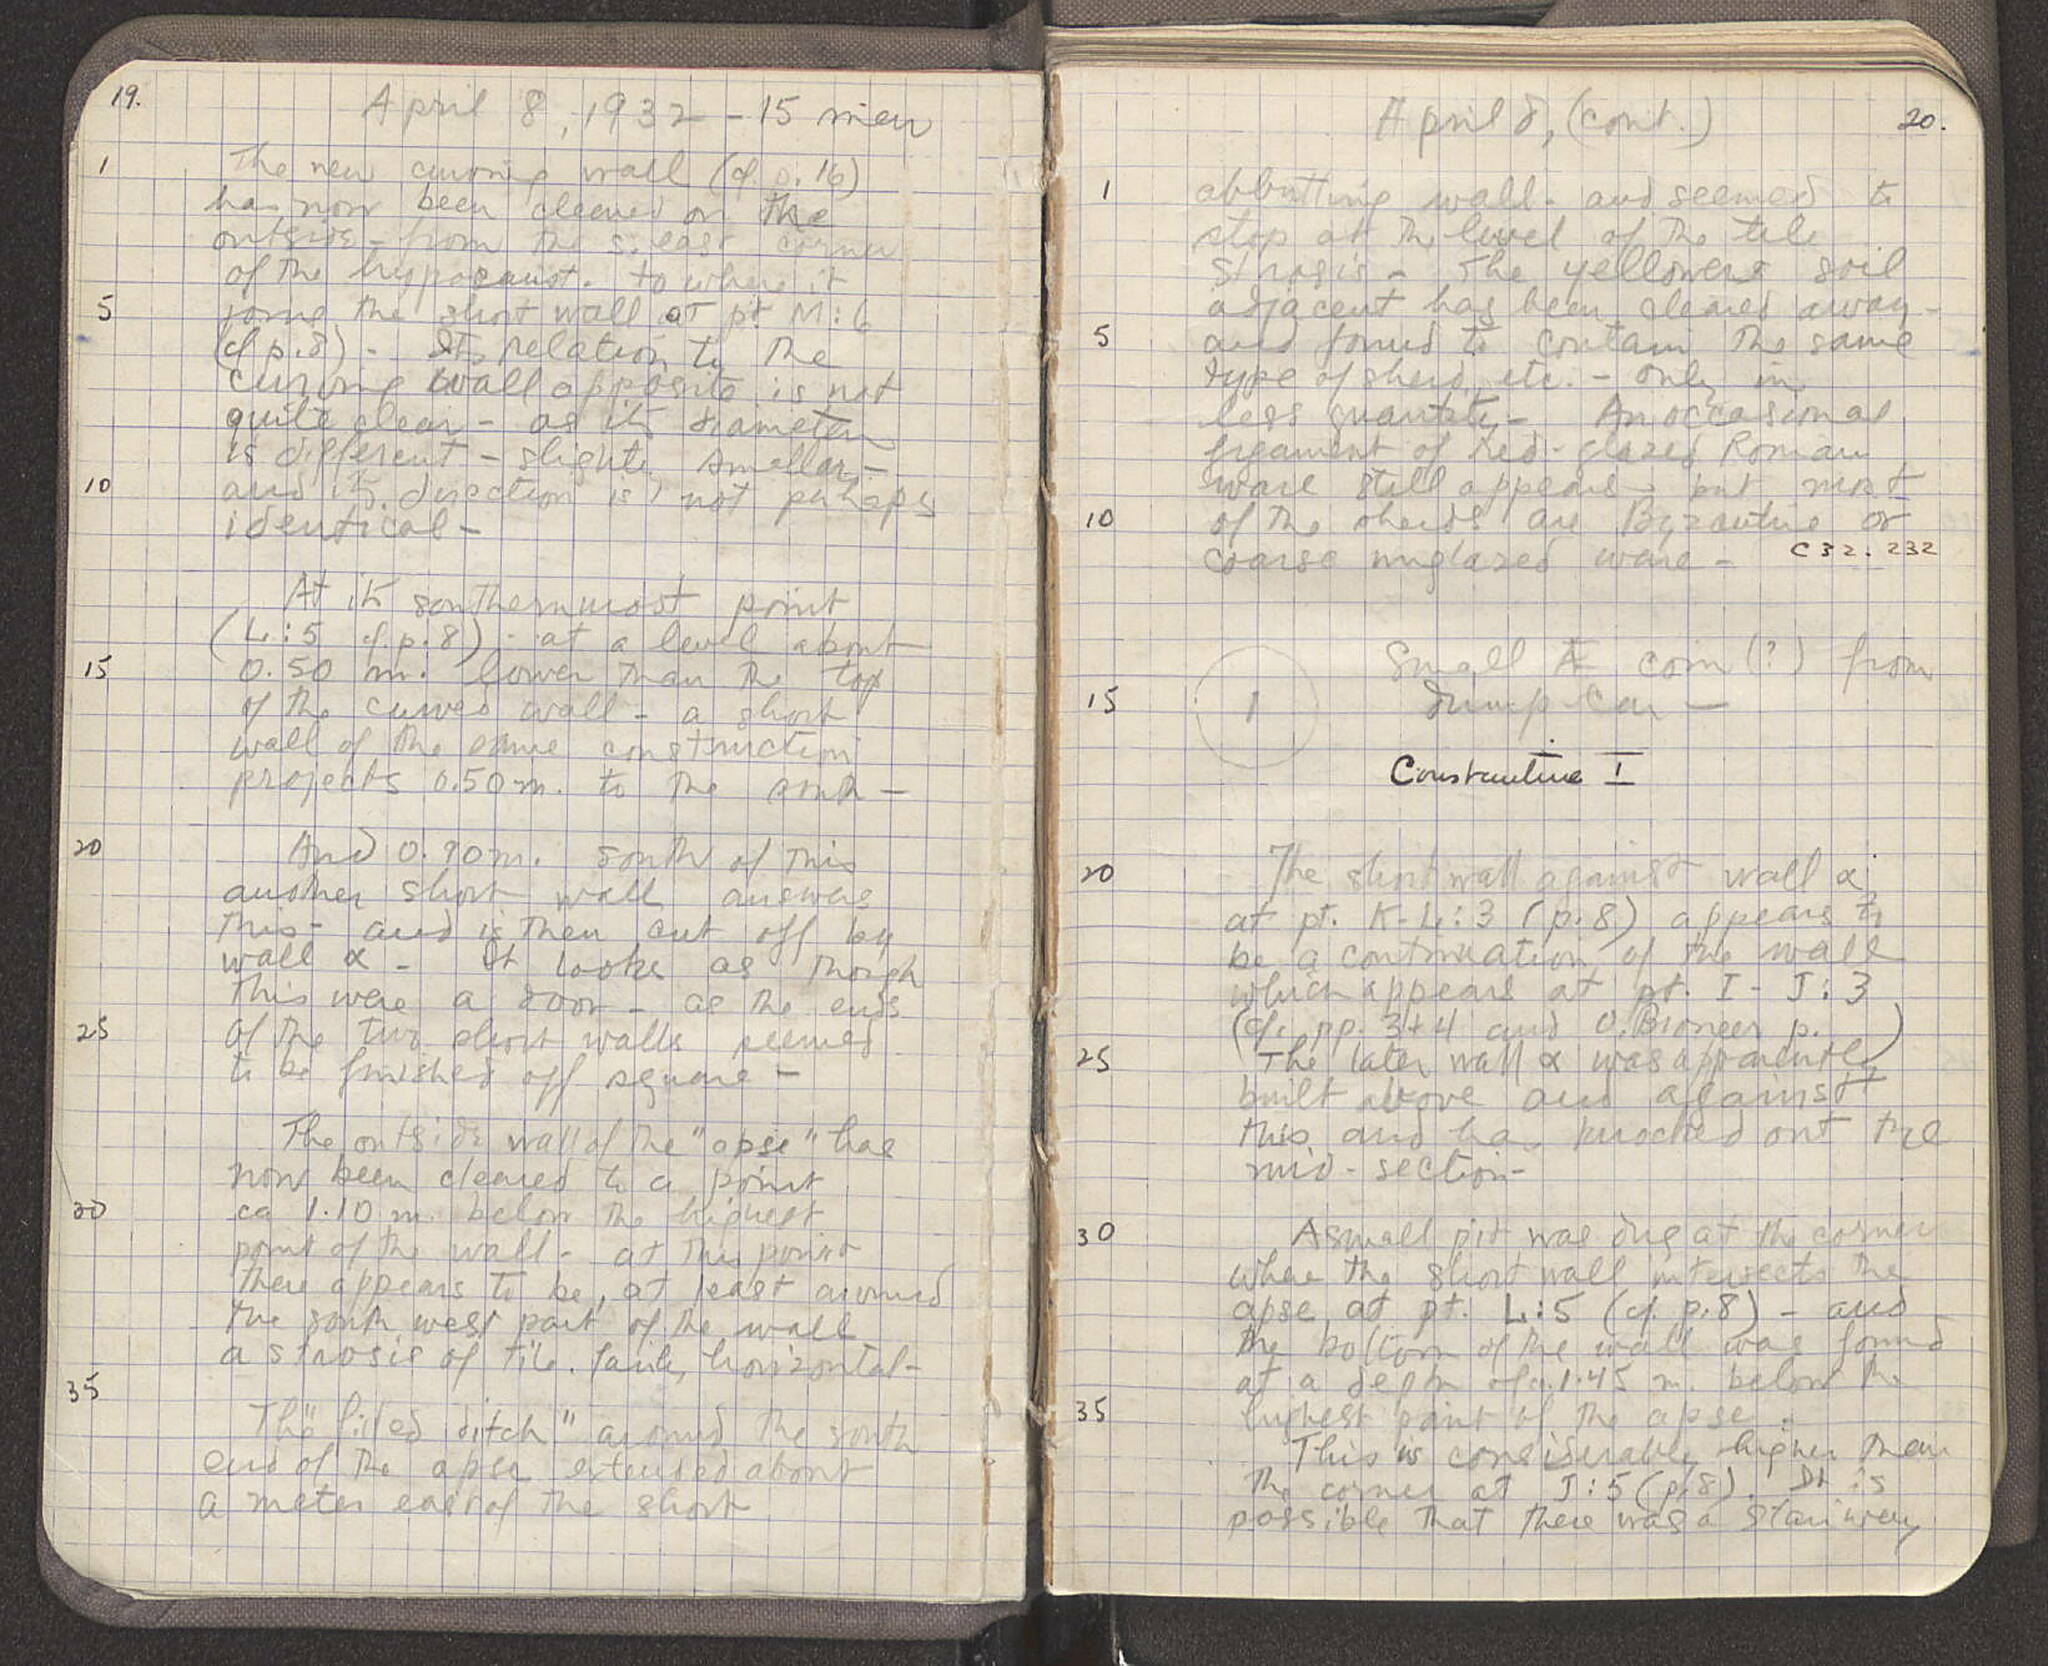 19.
April 8, 1932 - 15 men
1
The new curving wall (cf. p. 16)
has now been cleared on the
outside - from the s. east corner
of the hypocaust. to where it
5
joins the short wall at pt. M:6
(cf p.8) - Its relation to the
curving wall opposite is not
quite clear - as its diameter
is different - slightly smaller -
10
and its direction is not perhaps
identical -
At its southernmost point
(L:5 cf. p. 8) - at a level about
15
0.50 m. lower than the top
of the curved wall - a short
wall of the same construction
projects 0.50 m. to the south -
20
And 0.90 m. south of this
another short wall answers
this - and is then cut off by
wall α - It looks as though
this were a door - as the ends
25
of the two short walls seemed
to be finished off square -
The outside wall of the "apse" has
now been cleared to a point
30
ca 1.10 m. below the highest
point of the wall - at this point
there appears to be, at least around
the south west part of the wall
a strosis of tile. fairly horizontal -
35
The "filled ditch" around the south
end of the apse extended about
a meter east of the short
April 8, (cont.)
20.
1
abbutting wall - and seemed to
stop at the level of the tile
strosis - The yellower soil
adjacent has been cleared away -
5
and found to contain the same
type of sherd, etc. - only in
less quantity - An occasional
frgament of red-glazed Roman
ware still appears but most
10
of the sherds are Byzantine or
coarse unglazed ware -
C 32. 232
Small Æ coin (?) from
15
1
dump-car -
Constantine I
20
The short wall against wall α
at pt. K-L:3 (p. 8) appears to
be a continuation of the wall
which appears at pt. I-J:3
(cf. pp. 3+4 and O. Broneer p. )
25
The later wall α was apparently
built above and against
this and has knocked out the
mid-section -
30
A small pit was dug at the corner
where the short wall intersects the
apse at pt. L:5 (cf. p.8) - and
the bottom of the wall was found
at a depth of 1.45 m. below the
35
highest point of the apse.
This is considerably higher than
the corner at J:5 (p.8). It is
possible that there was a stairway